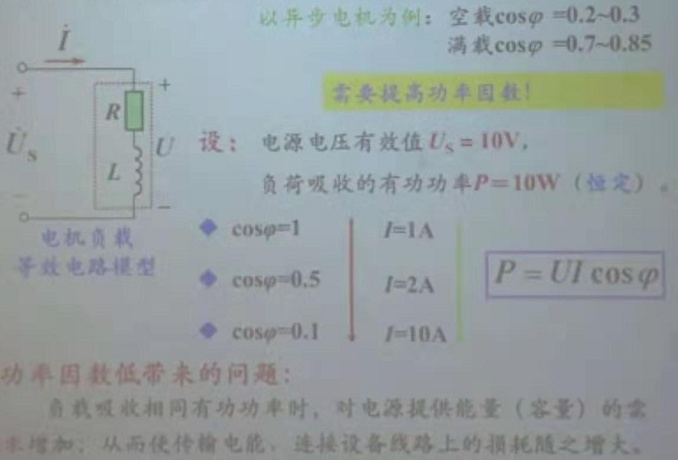 以异步电机为例：空载cosφ =0.2~0.3
满载cosφ =0.7~0.85
İ
需要提高功率因数！
+ +
R
U̇s U
L
设：电源电压有效值 Us = 10V，
负荷吸收的有功功率P=10W（恒定）。
− −
电机负载
等效电路模型
◆ cosφ=1 I=1A
◆ cosφ=0.5 I=2A
P = UI cosφ
◆ cosφ=0.1 I=10A
功率因数低带来的问题：
负载吸收相同有功功率时，对电源提供能量（容量）的需
求增加；从而使传输电能、连接设备线路上的损耗随之增大。